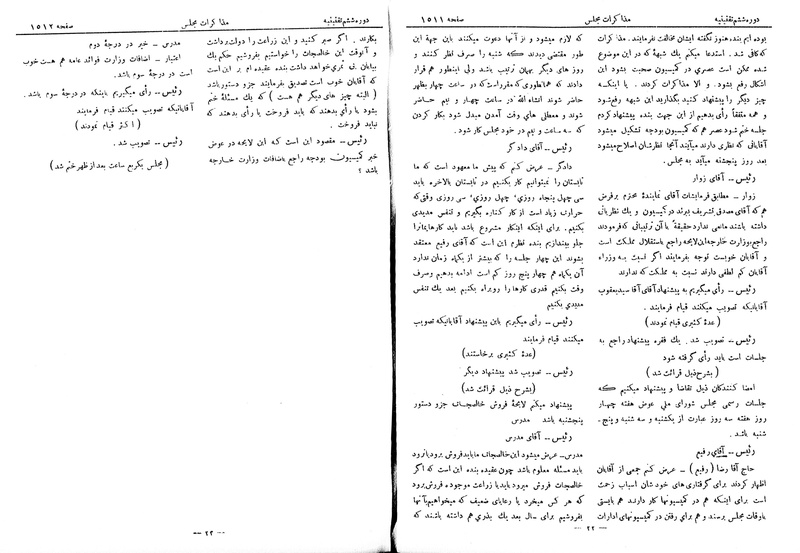 دوره ششم تقنینیه
مذاکرات مجلس
صفحه ۱۵۱۱
بوده ایم بنده هنوز نگفته ایشان مخالفت نفرمایند. مذاکرات
که کافی شد. استدعا میکنم یك شبهۀ که در این موضوع
شده ممکن است عصری در کمیسیون صحبت بشود این
اشکال رفع بشود. و الا مذاکرات کردند. یا اینکه
چیز دیگر را پیشنهاد کنید بگذارید این شبهه رفع شود
و همه متفقاً رأی بدهیم از این جهت بنده پیشنهاد کردم
جلسه ختم شود عصر هم که کمیسیون بودجه تشکیل میشود
آقایانی که نظری دارند میآیند آنجا نظرشان اصلاح میشود
بعد روز پنجشنبه میآید به مجلس.
رئیس ــ آقای زوار
زوار ــ مطابق فرمایشات آقای نمایندۀ محترم برفرض
هم که آقای مصدق تشریف ببرند در کمیسیون و یك نظریاتی
داشته باشند مانعی ندارد حقیقةً با آن ترتیباتی که فرمودند
راجع بوزارت خارجه این لایحه راجع باستقلال مملکت است
و آقایان خوبست توجه بفرمایند اگر نسبت به وزراء
آقایان کم لطفی دارند نسبت به مملکت که ندارند
رئیس ــ رأی میگیریم به پیشنهاد آقای آقا سید یعقوب
آقایانیکه تصویب میکنند قیام فرمایند.
(عدۀ کثیری قیام نمودند)
رئیس ــ تصویب شد. یك فقره پیشنهاد راجع به
جلسات است باید رأی گرفته شود
(بشرح ذیل قرائت شد)
امضا کنندگان ذیل تقاضا و پیشنهاد میکنیم که
جلسات رسمی مجلس شورای ملی عوض هفته چهار
روز هفته سه روز عبارت از یکشنبه و سه شنبه و پنج
شنبه باشد.
رئیس ــ آقای رفیع
حاج آقا رضا (رفیع) ــ عرض کنم جمعی از آقایان
اظهار کردند برای گرفتاری های خودشان اسباب زحمت
است برای اینکه هم در کمیسیونها کار دارند هم بایستی
باوقات مجلس برسند و هم برای رفتن در کمیسیونهای ادارات
که لازم میشود و از آنها دعوت میکنند باین جهة این
طور مقتضی دیدند که شنبه را صرف نظر کنند و
روز های دیگر بهمان ترتیب باشد ولی اینطور هم قرار
دادند که همانطوری که مقرر است که در ساعت چهار بظهر
حاضر شوند انشاءالله در ساعت چهار و نیم حاضر
شوند و معطلی های وقت آمدن مبدل شود بکار کردن
که سه ساعت و نیم در خود مجلس کار شود.
رئیس ــ آقای دادگر
دادگر ــ عرض کنم که پیش ما معهود است که ما
تابستان را نمیتوانیم کار بکنیم در تابستان بالاخره باید
سی چهل پنجاه روزی، چهل روزی، سی روزی وقتی که
حرارت زیاد است از کار کناره بگیریم و تنفس مدیدی
بکنیم. برای اینکه اینکار مشروع باشد باید کارهایمان را
جلو بیندازیم بنده نظرم این است که آقای رفیع معتقد
بشوند این چهار جلسه را که بیشتر از یکماه زمان ندارد
آن یکماه هم چهار پنج روز کم است ادامه بدهیم و صرف
وقت بکنیم قدری کارها را روبراه بکنیم بعد یك تنفس
مدیدی بکنیم
رئیس ــ رأی میگیریم باین پیشنهاد آقایانیکه تصویب
میکنند قیام فرمایند
(عدۀ کثیری برخاستند)
رئیس ــ تصویب شد پیشنهاد دیگر
(بشرح ذیل قرائت شد)
پیشنهاد میکنم لایحۀ فروش خالصجات جزو دستور
پنجشنبه باشد مدرس
رئیس ــ آقای مدرس
مدرس ــ عرض میشود این خالصجات ما باید فروش برود یا نرود
باید مسئله معلوم باشد چون عقیده بنده این است که اگر
خالصجات فروش میرود باید با زراعت موجوده فروش برود
که هر کس میخرد یا رعایای ضعیف که میخواهیم بآنها
بفروشیم برای سال بعد یك بذری هم داشته باشند که
ــ ۲۲ ــ
دوره ششم تقنینیه
مذاکرات مجلس
صفحه ۱۵۱۲
بکارند. اگر صبر کنید و این زراعت را دولت برداشت
و آنوقت این خالصجات را خواستیم بفروشیم حکم یك
بیابان بی ثمری خواهد داشت بنده عقیده ام بر این است
که آقایان خوب است تصدیق بفرمایند جزو دستور باشد
(البته چیز های دیگر هم هست) که یك مسئلۀ ختم
بشود یا رأی بدهند که باید فروخت یا رأی بدهند که
نباید فروخت.
رئیس ــ مقصود این است که این لایحه در عوض
خبر کمیسیون بودجه راجع باضافات وزارت خارجه
باشد؟
مدرس ــ خیر در درجۀ دوم
اعتبار ــ اضافات وزارت فوائد عامه هم هست خوب
است در درجۀ سوم باشد.
رئیس ــ رأی میگیریم باینکه در درجۀ سوم باشد.
آقایانیکه تصویب میکنند قیام فرمایند
(اکثر قیام نمودند)
رئیس ــ تصویب شد.
(مجلس یکربع ساعت بعد از ظهر ختم شد)
ــ ۲۳ ــ